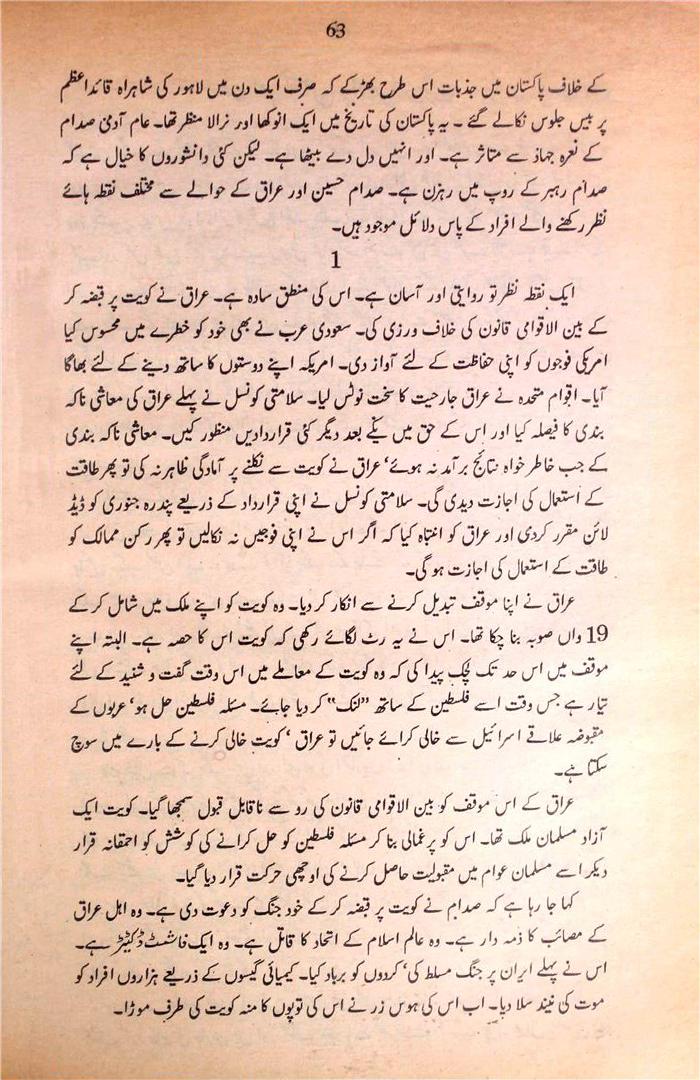 63
کے خلاف پاکستان میں جذبات اس طرح بھڑکے کہ صرف ایک دن میں لاہور کی شاہراہ قائداعظم
پر بیس جلوس نکالے گئے ۔ یہ پاکستان کی تاریخ میں ایک انوکھا اور نرالا منظر تھا۔ عام آدمی صدام
کے نعرہ جہاد سے متاثر ہے۔ اور انہیں دل دے بیٹھا ہے۔ لیکن کئی دانشوروں کا خیال ہے کہ
صدام رہبر کے روپ میں رہزن ہے۔ صدام حسین اور عراق کے حوالے سے مختلف نقطہ ہائے
نظر رکھنے والے افراد کے پاس دلائل موجود ہیں۔
1
ایک نقطہ نظر تو روایتی اور آسان ہے۔ اس کی منطق سادہ ہے۔ عراق نے کویت پر قبضہ کر
کے بین الاقوامی قانون کی خلاف ورزی کی۔ سعودی عرب نے بھی خود کو خطرے میں محسوس کیا
امریکی فوجوں کو اپنی حفاظت کے لئے آواز دی۔ امریکہ اپنے دوستوں کا ساتھ دینے کے لئے بھاگا
آیا۔ اقوام متحدہ نے عراق جارحیت کا سخت نوٹس لیا۔ سلامتی کونسل نے پہلے عراق کی معاشی ناکہ
بندی کا فیصلہ کیا اور اس کے حق میں یکے بعد دیگر کئی قراردادیں منظور کیں۔ معاشی ناکہ بندی
کے جب خاطر خواہ نتائج برآمد نہ ہوئے، عراق نے کویت سے نکلنے پر آمادگی ظاہر نہ کی تو پھر طاقت
کے استعمال کی اجازت دیدی گی۔ سلامتی کونسل نے اپنی قرارداد کے ذریعے پندرہ جنوری کو ڈیڈ
لائن مقرر کردی اور عراق کو انتباہ کیا کہ اگر اس نے اپنی فوجیں نہ نکالیں تو پھر رکن ممالک کو
طاقت کے استعمال کی اجازت ہوگی۔
عراق نے اپنا موقف تبدیل کرنے سے انکار کر دیا۔ وہ کویت کو اپنے ملک میں شامل کر کے
19 واں صوبہ بنا چکا تھا۔ اس نے یہ رٹ لگائے رکھی کہ کویت اس کا حصہ ہے۔ البتہ اپنے
موقف میں اس حد تک لچک پیدا کی کہ وہ کویت کے معاملے میں اس وقت گفت و شنید کے لئے
تیار ہے جس وقت اسے فلسطین کے ساتھ ”لنک“ کر دیا جائے۔ مسئلہ فلسطین حل ہو، عربوں کے
مقبوضہ علاقے اسرائیل سے خالی کرائے جائیں تو عراق ، کویت خالی کرنے کے بارے میں سوچ
سکتا ہے۔
عراق کے اس موقف کو بین الاقوامی قانون کی رو سے ناقابل قبول سمجھا گیا۔ کویت ایک
آزاد مسلمان ملک تھا۔ اس کو یرغمالی بنا کر مسئلہ فلسطین کو حل کرانے کی کوشش کو احمقانہ قرار
دیکر اسے مسلمان عوام میں مقبولیت حاصل کرنے کی اوچھی حرکت قرار دیا گیا۔
کہا جا رہا ہے کہ صدام نے کویت پر قبضہ کر کے خود جنگ کو دعوت دی ہے۔ وہ اہل عراق
کے مصائب کا ذمہ دار ہے۔ وہ عالم اسلام کے اتحاد کا قاتل ہے۔ وہ ایک فاشسٹ ڈکٹیٹر ہے۔
اس نے پہلے ایران پر جنگ مسلط کی، کردوں کو برباد کیا۔ کیمیائی گیسوں کے ذریعے ہزاروں افراد کو
موت کی نیند سلا دیا۔ اب اس کی ہوس زر نے اس کی توپوں کا منہ کویت کی طرف موڑا۔